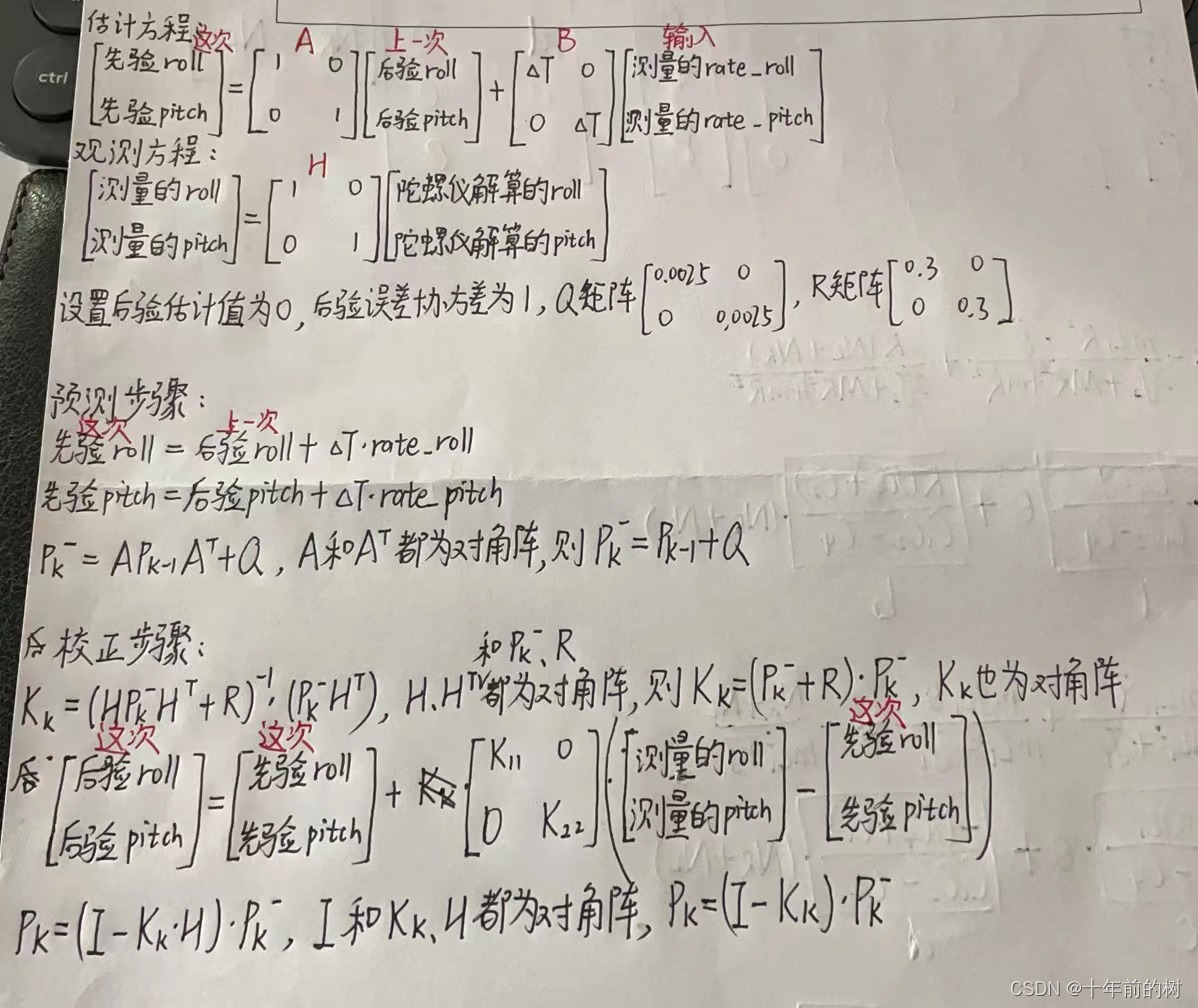 ctrl
估计方程:
这次 A 上一次 B 输入
[先验roll 先验pitch] = [1 0 0 1] [后验roll 后验pitch] + [ΔT 0 0 ΔT] [测量的rate_roll 测量的rate_pitch]
观测方程:
H
[测量的roll 测量的pitch] = [1 0 0 1] [陀螺仪解算的roll 陀螺仪解算的pitch]
设置后验估计值为0, 后验误差协方差为1, Q矩阵[0.0025 0 0 0.0025], R矩阵[0.3 0 0 0.3]
预测步骤:
这次 上一次
先验roll = 后验roll + ΔT·rate_roll
先验pitch = 后验pitch + ΔT·rate_pitch
Pk⁻ = APk-1Aᵀ+Q, A和Aᵀ都为对角阵, 则Pk⁻ = Pk-1+Q
校正步骤:
和Pk⁻、R
Kk = (HPk⁻Hᵀ+R)⁻¹·(Pk⁻Hᵀ), H、Hᵀ都为对角阵, 则Kk=(Pk⁻+R)·Pk⁻, Kk也为对角阵
这次 这次 这次
[后验roll 后验pitch] = [先验roll 先验pitch] + [K11 0 0 K22] ([测量的roll 测量的pitch] - [先验roll 先验pitch])
Pk=(I-Kk·H)·Pk⁻, I和Kk、H都为对角阵, Pk=(I-Kk)·Pk⁻
CSDN @十年前的树